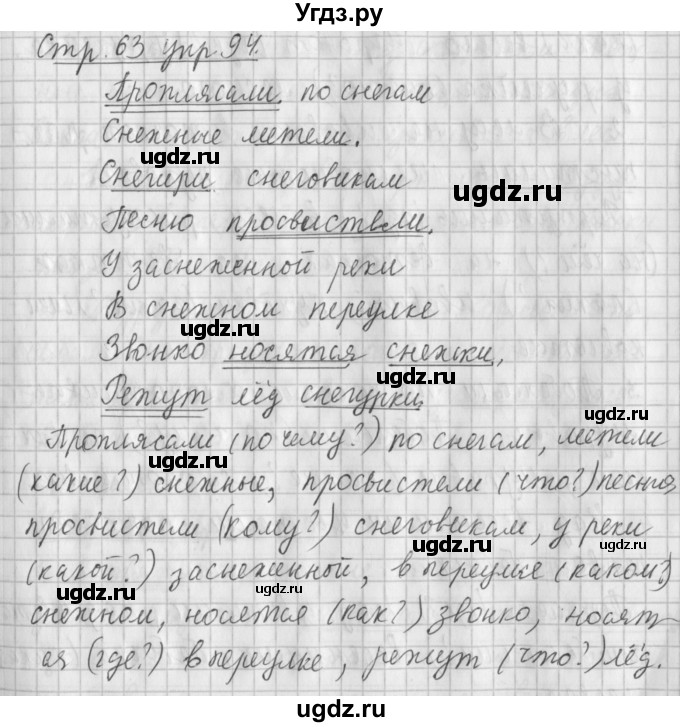 Угдз.ру
Стр. 63 упр. 94.
Проплясали по снегам
Снежные метели.
ugdz.ru
Снегири снеговикам
ugdz.ru
Песню просвистели.
У заснеженной реки
В снежном переулке
ugdz.ru
Звонко носятся снежки,
Режут лёд снегурки.
ugdz.ru
Проплясали (по чему?) по снегам, метели
ugdz.ru
(какие?) снежные, просвистели (что?) песню,
просвистели (кому?) снеговикам, у реки
ugdz.ru
(какой?) заснеженной, в переулке (каком?)
ugdz.ru
снежном, носятся (как?) звонко, носят-
ся (где?) в переулке, режут (что?) лёд.
ugdz.ru
ugdz.ru